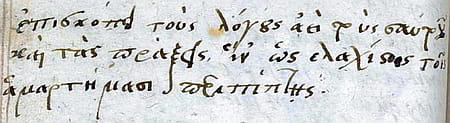 ἐπισκόπει τοὺς λόγους ἀεὶ τοὺς σαυτοῦ
καὶ τὰς πράξεις, ἵν' ὡς ἐλαχίστοις τοῖς
ἁμαρτήμασι περιπίπτῃς.